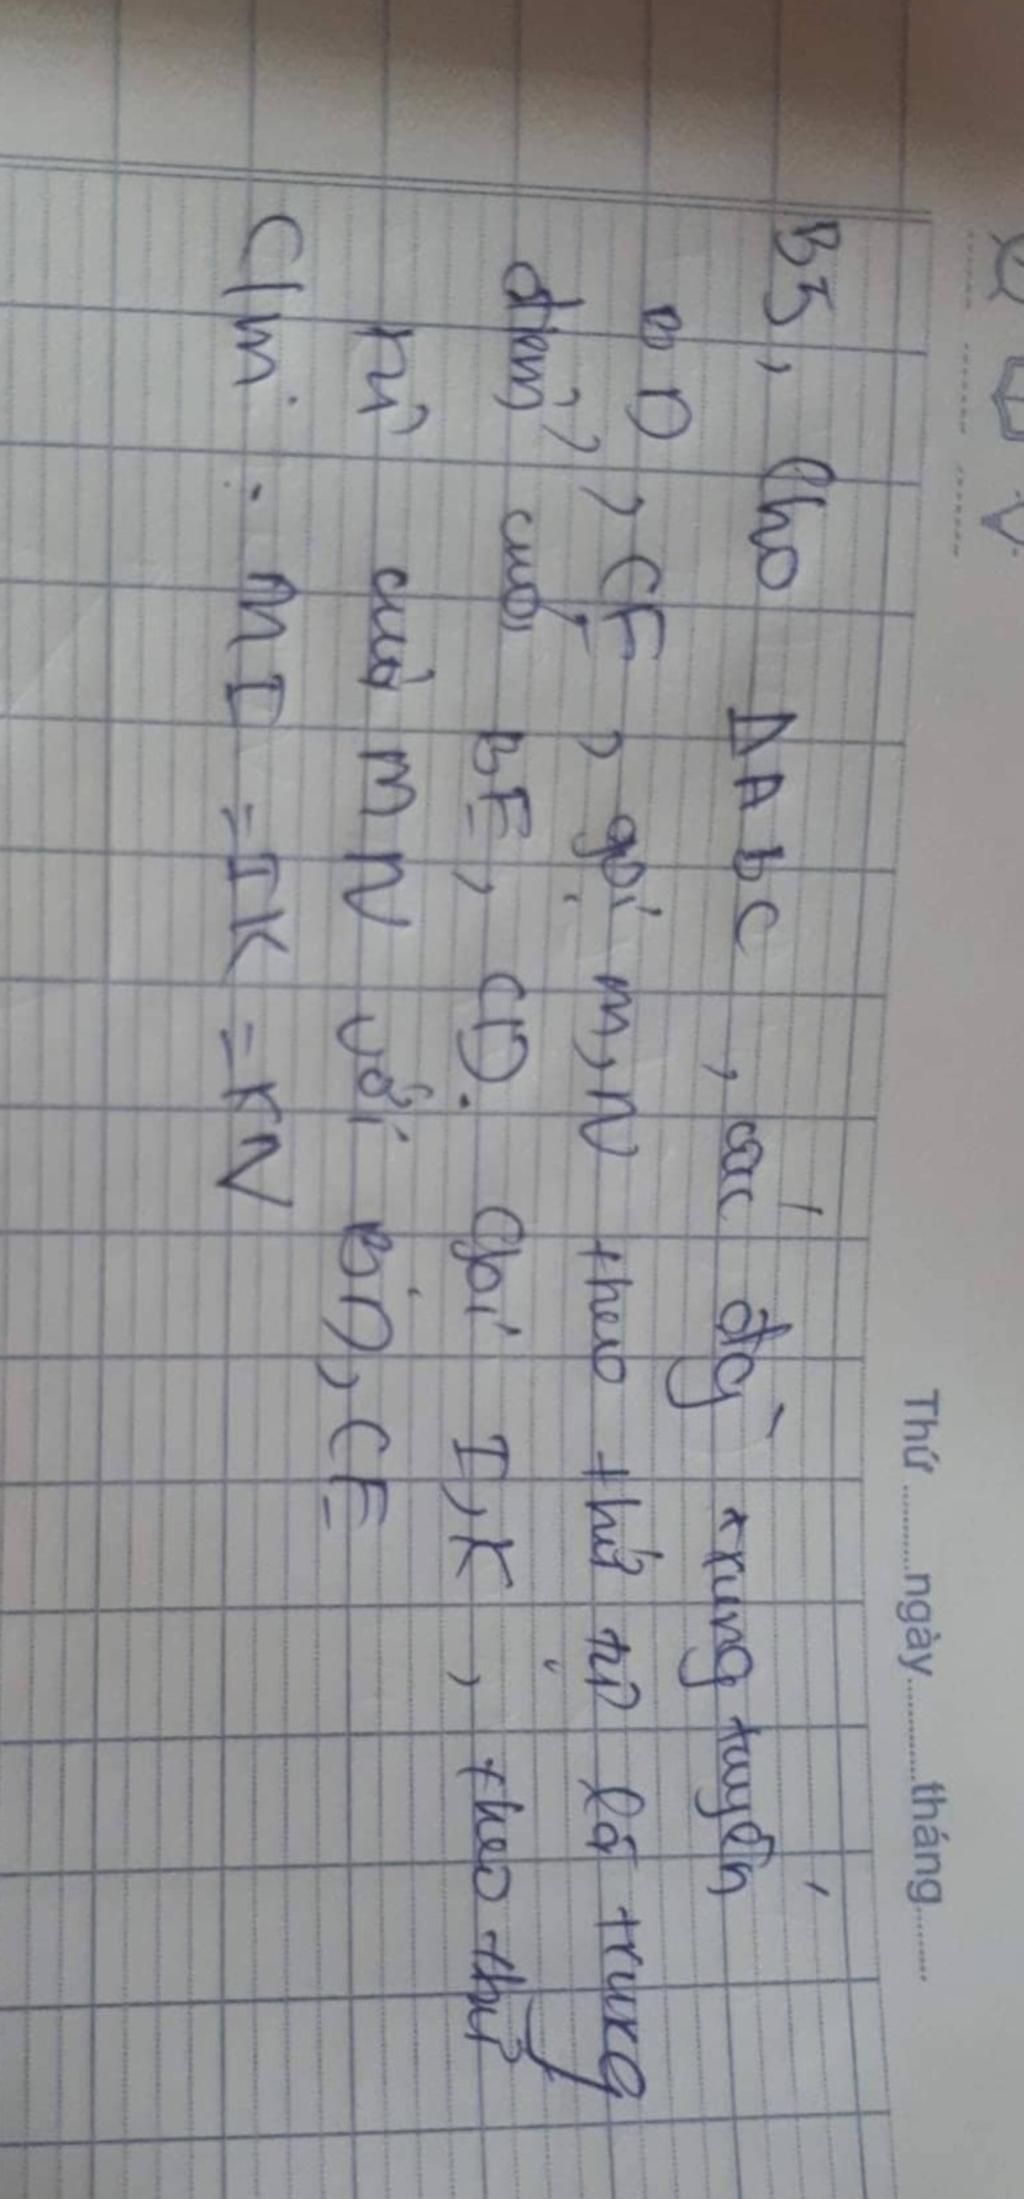 Thứ ..........ngày............tháng........
B5, Cho ΔABC, các đg` trung tuyến
BD, CE, gọi M,N theo thứ tự là trung
điểm, của BE, CD. Gọi I,K, theo thứ
tự của MN với BD, CE
C/m: MI =IK =KN